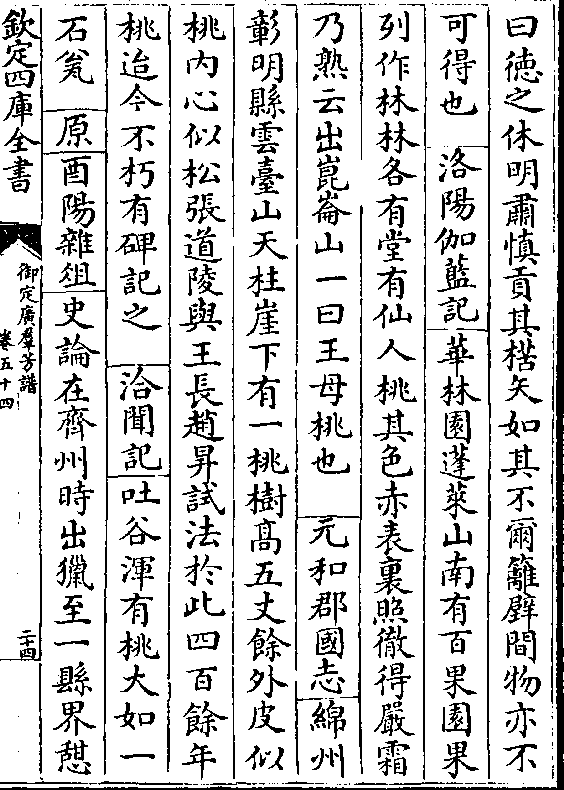 曰徳之休明肅慎貢其楛矢如其不爾籬壁間物亦不
可得也　洛陽伽藍記　華林園蓬萊山南有百果園果
列作林林各有堂有仙人桃其色赤表裏照徹得嚴霜
乃熟云出崑崙山一曰王母桃也　元和郡國志　綿州
彰明縣雲臺山天柱崖下有一桃樹髙五丈餘外皮似
桃内心似松張道陵與王長趙昇試法於此四百餘年
桃迨今不朽有碑記之　洽聞記　吐谷渾有桃大如一
石瓮　原　酉陽雜俎　史論在齊州時出獵至一縣界憇
欽定四庫全書
御定廣羣芳譜
卷五十四
二十四